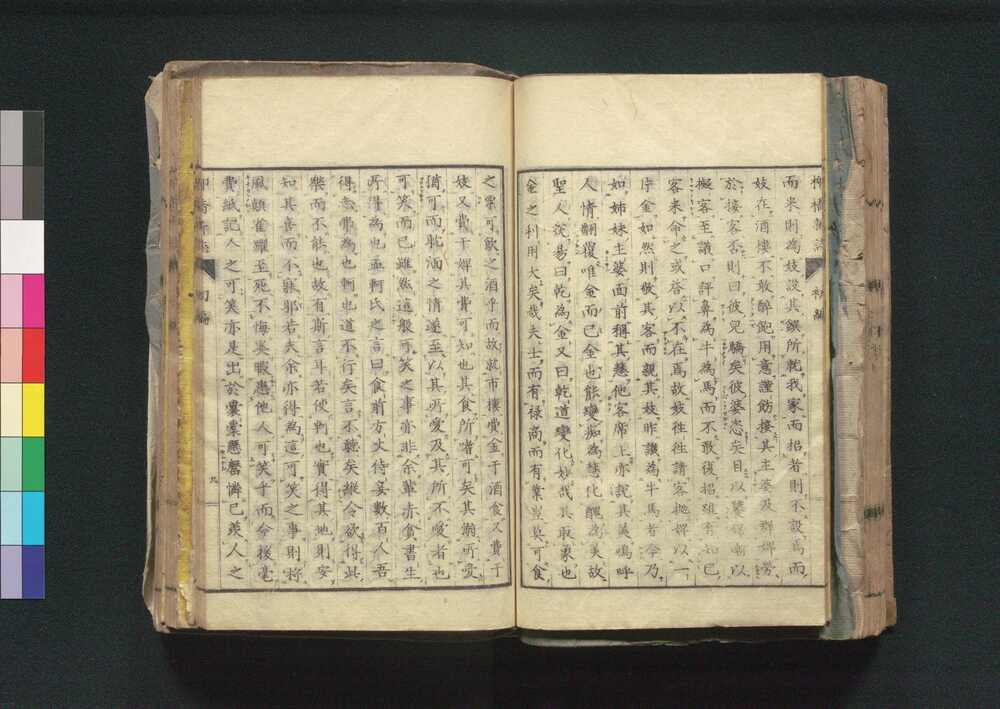 柳橋新誌 初編
而米則為妓設其饌所就我家而招者則不設焉而
妓在酒樓不敢醉跑用意謹飭接其主婆及群婢勞
於接客否則曰彼兒驕矣彼婆悲矣目以
擬客至議口評鼻為牛為馬而不敢復招雖有知己
客来命之或答以不在焉故妓徃徃請客抛婢以一
片金如然則敬其客而親其妓昨讓為牛馬者今乃
如姉妹主婆面前稱其慧他客席上亦說其美嗚呼
人情翻覆唯金而已金也能變痴為慧化醜為美故
聖人說易曰乾為金又曰乾道變化妙哉其取象也
金之利用大矣哉夫士而有禄商而有業豈莫可食
之粟可飲之酒乎而故就市樓費金于酒食又費于
妓又費于婢其費可知也其食所嗜可矣其溺所愛
猶可而耽湎之情遂至以其所愛及其所不愛者也
可笑而已雖然這般可笑之事亦非余輩赤貧書生
所得為也孟軻氏之言曰食前方丈侍妾數百人吾
得志弗為也軻也道不行矣言不聽矣縱令欲得此
樂而不能也故有斯言耳若使軻也實得其地則安
知其喜而不耽邪若夫余亦得為這可笑之事則将
鳳顛雀躍至死不悔奚暇愚他人可笑乎而今後毫
費紙記人之可笑亦是出於囊橐懸罄憐己羨人之
柳橋新誌 初編 九